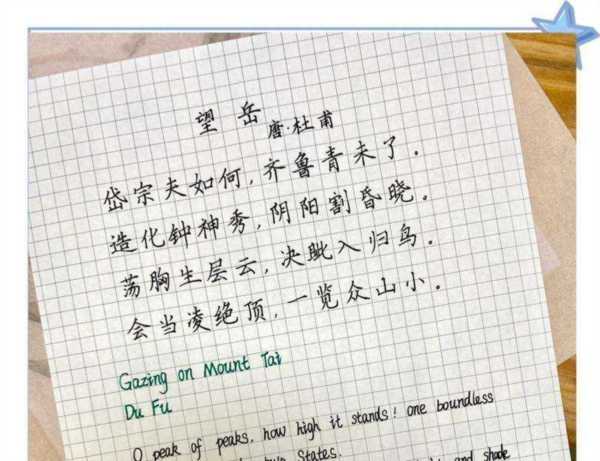 望岳
唐·杜甫
岱宗夫如何,齐鲁青未了.
造化钟神秀,阴阳割昏晓.
荡胸生层云,决眦入归鸟.
会当凌绝顶,一览众山小.
Gazing on Mount Tai
Du Fu
O peak of peaks, how high it stands! one boundless
States.
and shade